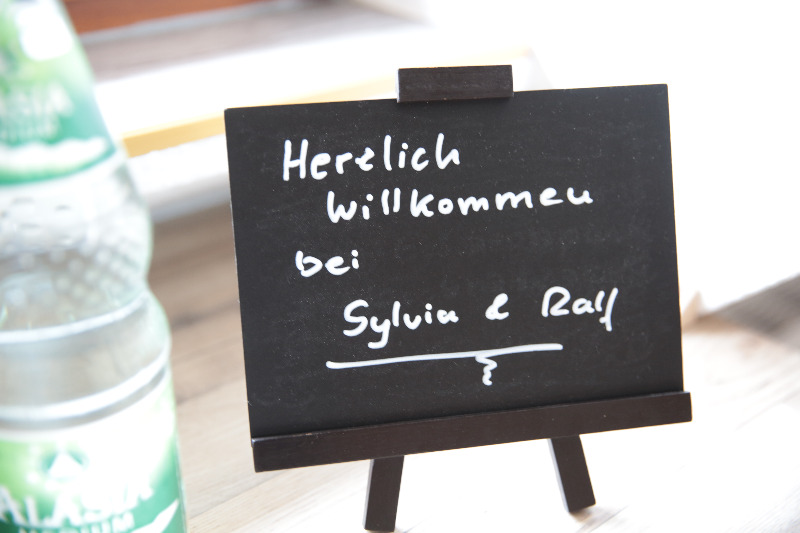 Herzlich
Willkommen
bei
Sylvia & Ralf
ALASIA
MEDIUM